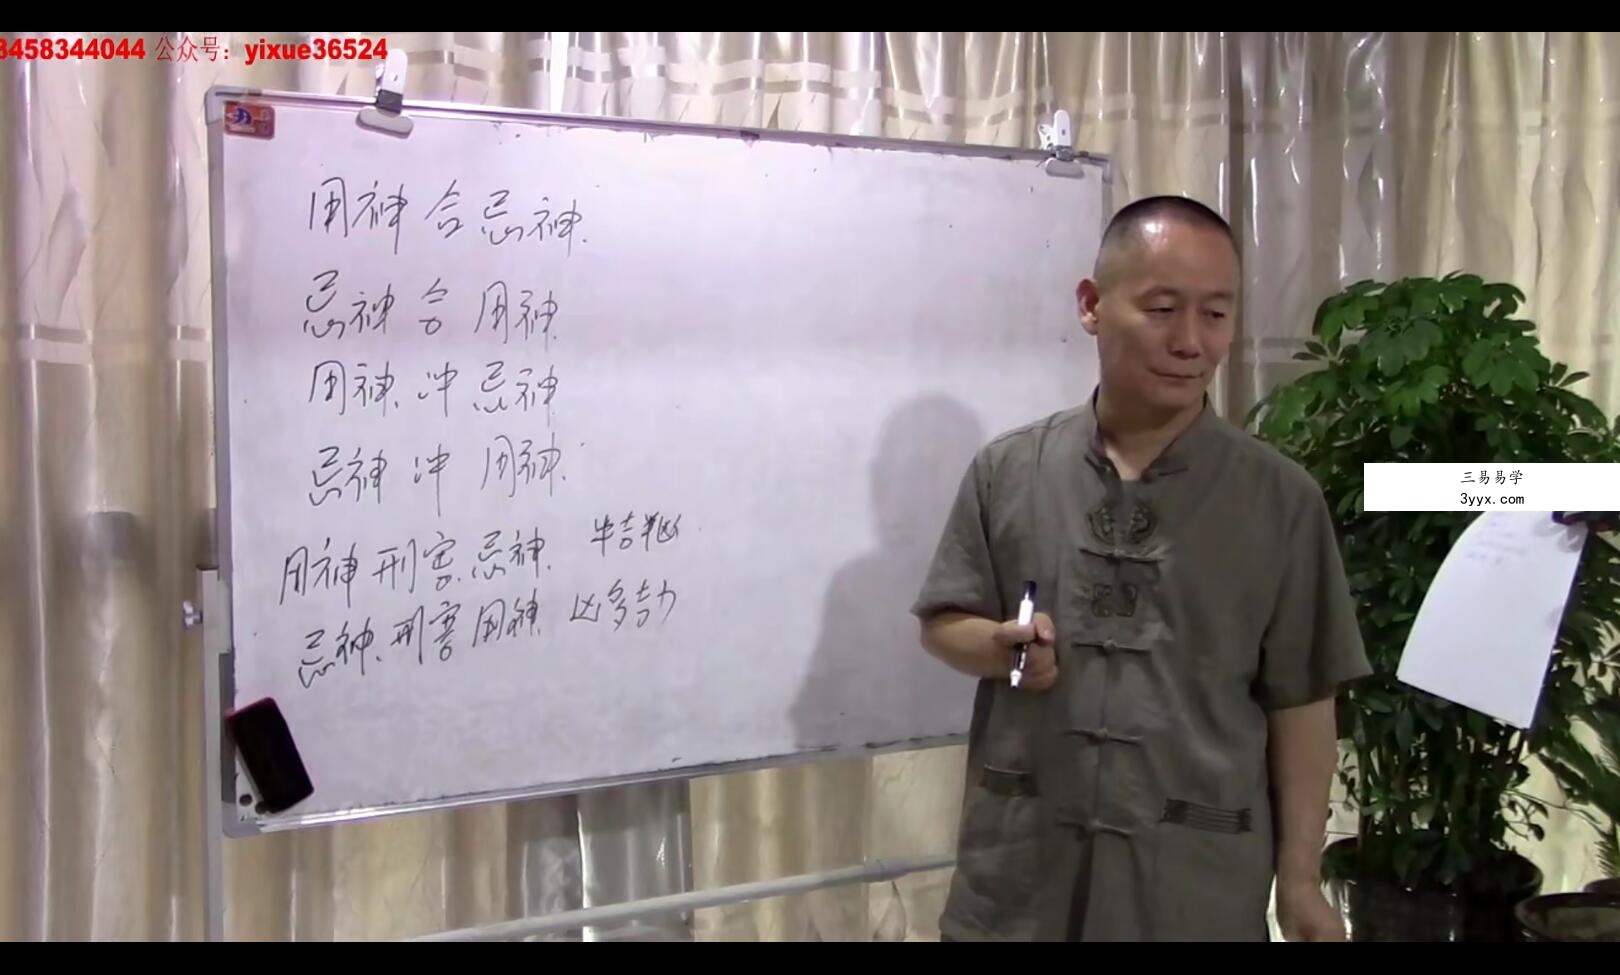 8458344044 公众号：yixue36524
用神合忌神.
忌神合用神
用神.冲忌神
忌神冲用神.
用神刑害.忌神. 半吉半凶
忌神.刑害用神. 凶多吉少
三易易学
3yyx.com